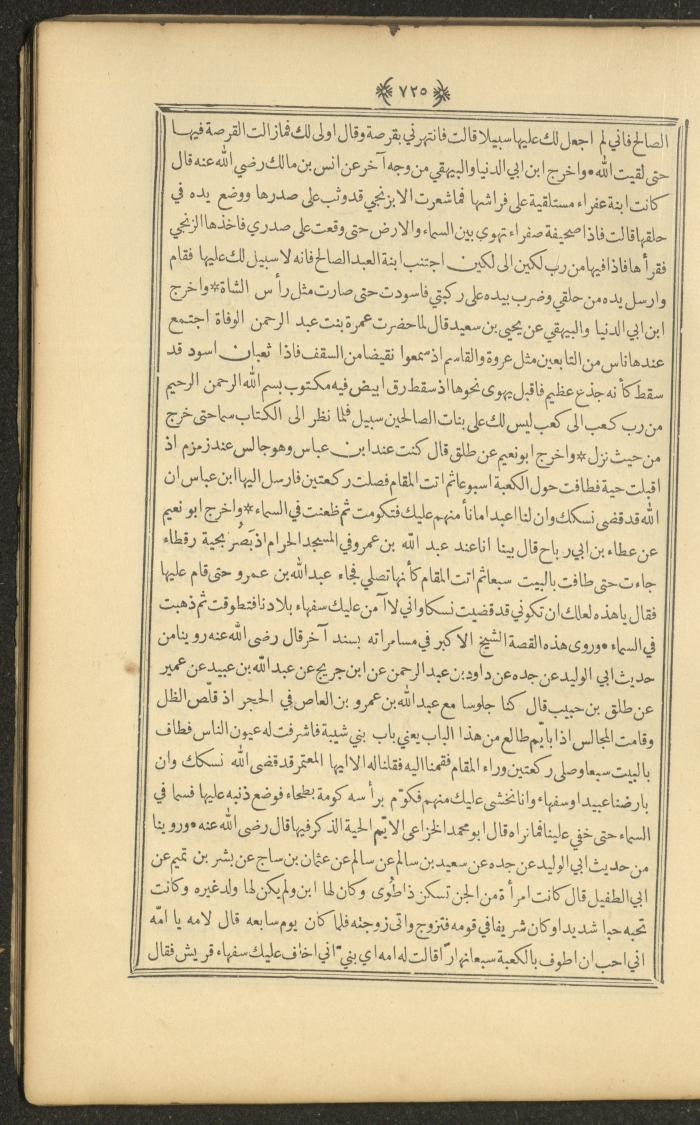 ﴿٧٢٥﴾
الصالح فاني لم اجعل لك عليها سبيلا قالت فانتهرني بقرصة وقال اولى لك فمازالت القرصة فيها
حتى لقيت الله • واخرج ابن ابي الدنيا والبيهقي من وجه آخر عن انس بن مالك رضي الله عنه قال
كانت ابنة عفراء مستلقية على فراشها فما شعرت الا بزنجي قد وثب على صدرها ووضع يده في
حلقها قالت فاذا صحيفة صفراء تهوى بين السماء والارض حتى وقعت على صدري فاخذها الزنجي
فقرأها فاذا فيها من رب لكين الى لكين اجتنب ابنة العبد الصالح فانه لا سبيل لك عليها فقام
وارسل يده من حلقي وضرب بيده على ركبتي فاسودت حتى صارت مثل رأس الشاة * واخرج
ابن ابي الدنيا والبيهقي عن يحيى بن سعيد قال لما حضرت عمرة بنت عبد الرحمن الوفاة اجتمع
عندها ناس من التابعين مثل عروة والقاسم اذ سمعوا نقيضا من السقف فاذا ثعبان اسود قد
سقط كأنه جذع عظيم فاقبل يهوى نحوها اذ سقط رق ابيض فيه مكتوب بسم الله الرحمن الرحيم
من رب كعب الى كعب ليس لك على بنات الصالحين سبيل فلما نظر الى الكتاب سما حتى خرج
من حيث نزل * واخرج ابو نعيم عن طلق قال كنت عند ابن عباس وهو جالس عند زمزم اذ
اقبلت حية فطافت حول الكعبة اسبوعا ثم اتت المقام فصلت ركعتين فارسل اليها ابن عباس ان
الله قد قضى نسكك وان لنا اعبدا ما نأمنهم عليك فتكومت ثم ظعنت في السماء * واخرج ابو نعيم
عن عطاء بن ابي رباح قال بينا انا عند عبد الله بن عمرو في المسجد الحرام اذ بَصُر بحية رقطاء
جاءت حتى طافت بالبيت سبعا ثم اتت المقام كأنها تصلي فجاء عبدالله بن عمرو حتى قام عليها
فقال يا هذه لعلك ان تكوني قد قضيت نسكا واني لا آمن عليك سفهاء بلادنا فتطوقت ثم ذهبت
في السماء • وروى هذه القصة الشيخ الاكبر في مسامراته بسند آخر قال رضى الله عنه روينا من
حديث ابي الوليد عن جده عن داود بن عبد الرحمن عن ابن جريج عن عبد الله بن عبيد عن عمير
عن طلق بن حبيب قال كنا جلوسا مع عبد الله بن عمرو بن العاص في الحجر اذ قلّص الظل
وقامت المجالس اذا بايّم طالع من هذا الباب يعني باب بني شيبة فاشرفت له عيون الناس فطاف
بالبيت سبعا وصلى ركعتين وراء المقام فقمنا اليه فقلنا له الا ايها المعتمر قد قضى الله نسكك وان
بارضنا عبيدا وسفهاء وانا نخشى عليك منهم فكوّم برأسه كومة بطحاء فوضع ذنبه عليها فسما في
السماء حتى خفي علينا فما نراه قال ابو محمد الخزاعي الايّم الحية الذكر فيها قال رضى الله عنه • وروينا
من حديث ابي الوليد عن جده عن سعيد بن سالم عن سالم عن عثمان بن ساج عن بشر بن تميم عن
ابي الطفيل قال كانت امرأة من الجن تسكن ذا طُوى وكان لها ابن ولم يكن لها ولد غيره وكانت
تحبه حبا شديدا وكان شريفا في قومه فتزوج واتى زوجته فلما كان يوم سابعه قال لامه يا امّه
اني احب ان اطوف بالكعبة سبعا نهارًا قالت له امه اي بنيّ اني اخاف عليك سفهاء قريش فقال